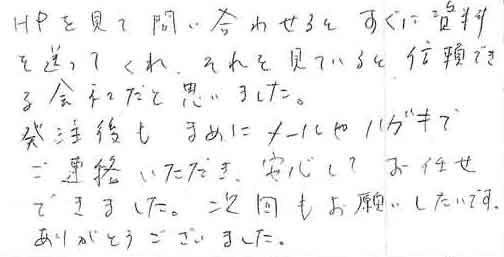 HPを見て問い合わせるとすぐに資料
を送ってくれ、それを見ていると信頼でき
る会社だと思いました。
発注後もまめにメールやハガキで
ご連絡いただき、安心してお任せ
できました。次回もお願いしたいです。
ありがとうございました。